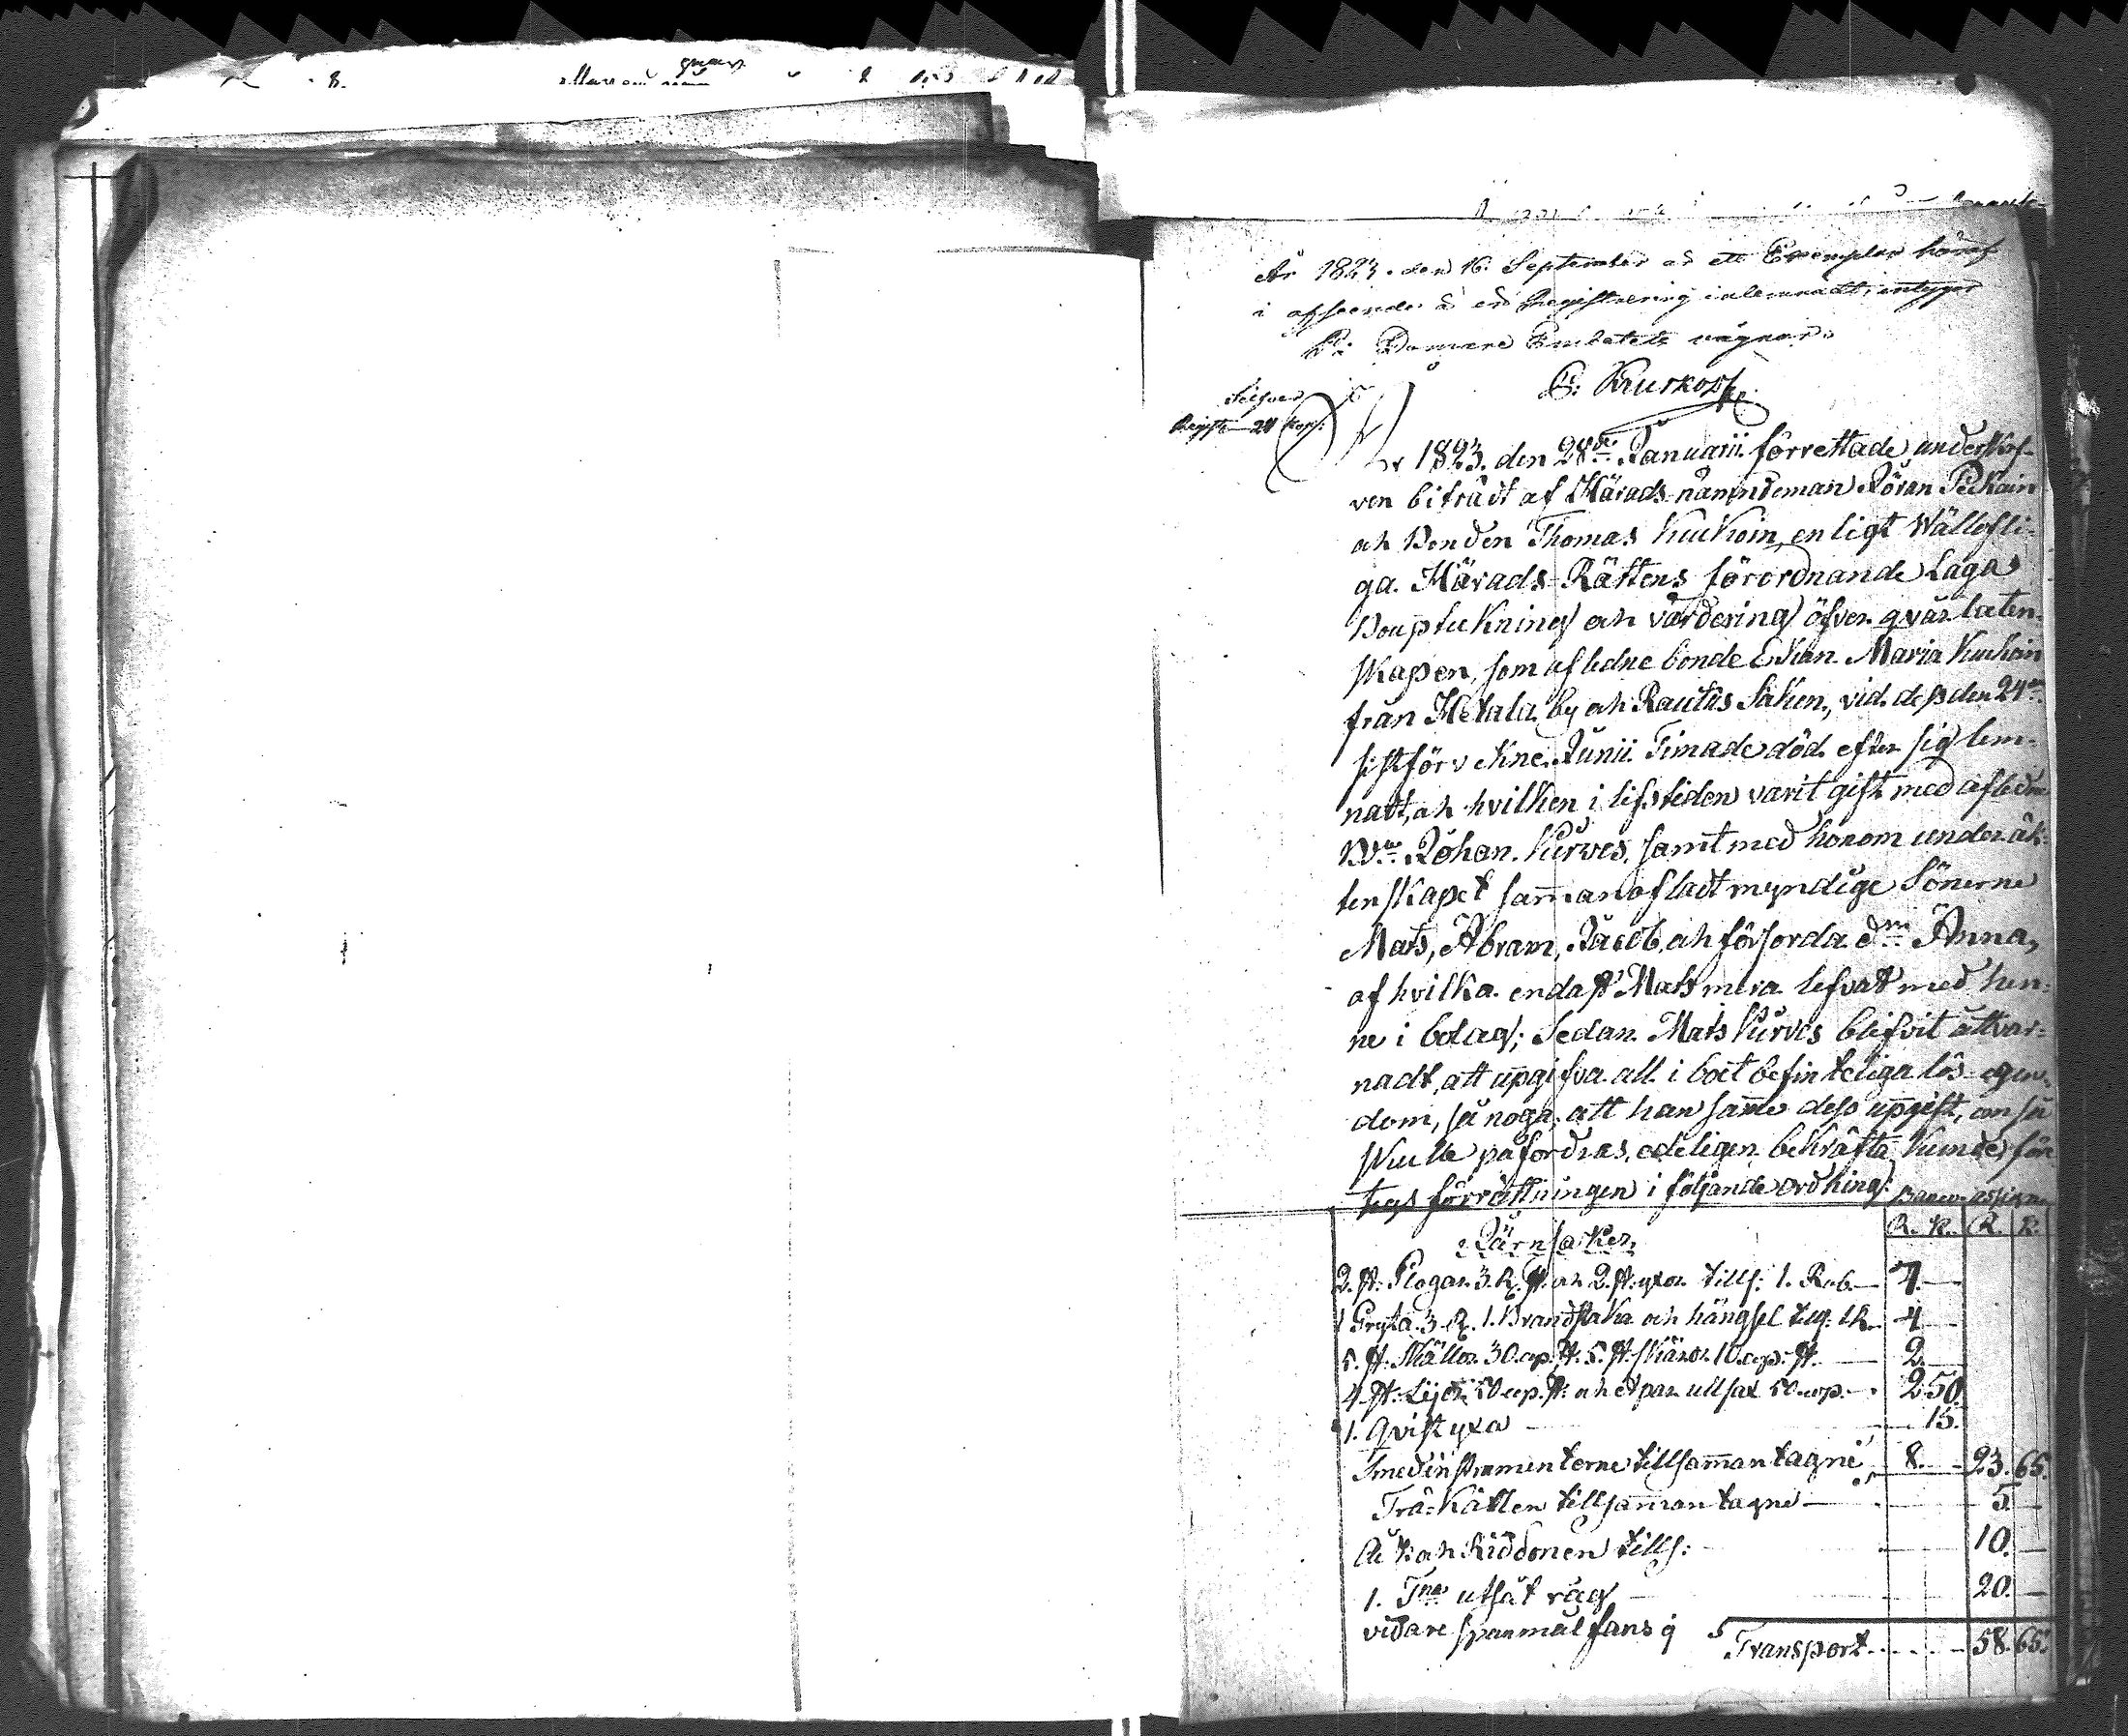 År 1823. den 16. September är ett Exemplar häraf
i afseende å en Registrering inlemnadt; intygar
På Domare Embetets vägnar.
C: Kruskopf
Silfver
Regist— 24 kop:
År 1823. den 28de Januarii förrettade underskref-
ven biträdt af Härads-nämndeman Jöran Peckoin
och Bonden Thomas Kuckoin, enligt Wällofli-
ga Härads-Rättens förordnande Laga
Boupteckning och värdering öfver qvarlåten-
skapen, som afledne bonde Enkan Maria Kuckoin
från Metala by och Rautus Saken, vid dess den 24de
sistförvekne Junii Timade död efter sig lem-
nadt, och hvilken i lifstiden varit gift med afledne
Bdn Johan Kirves, samt med honom under äk-
tenskapet samanafladt myndige Sönerne
Mats, Abram, Jacob, och försorda dn Anna,
af hvilka endast Mats mera lefvat med hen-
ne i bolag; Sedan Mats Kirves blifvit åtvar-
nadt, att upgifva all i boet befinteliga lös egen-
dom, så noga, att han samme dess upgift, om så
skulle påfordras, edeligen bekräfta kunde, före-
togs förrättningen i följande ordning:
Banco assign.
R. K. R. K.
Järnsaker,
2. st: Plogar 3. R. st: och 2. st: yxor tills: 1. Rub.— 7.—
1 Gryta 3 R. 1. Brandstaka och hängsel tills. 1 R. 4—
5. st. Skällor 30. cop. st: 5. st: skäror 10. cop: st. — 2.—
4. st: Lijor 50 cop. st: och et par ullsax 50. cop.— 2.50.
1. Qvistyxa — 15.
Smedinstrumenterne tillsamman tagne 8.— 23.65.
Trä-Kätlen tillsamman tagne — 5.—
Åk och Riddonen tills: 10.—
1. Tna utsåt råg — 20.—
vidare spanmål fans ej
Transport 58.65.